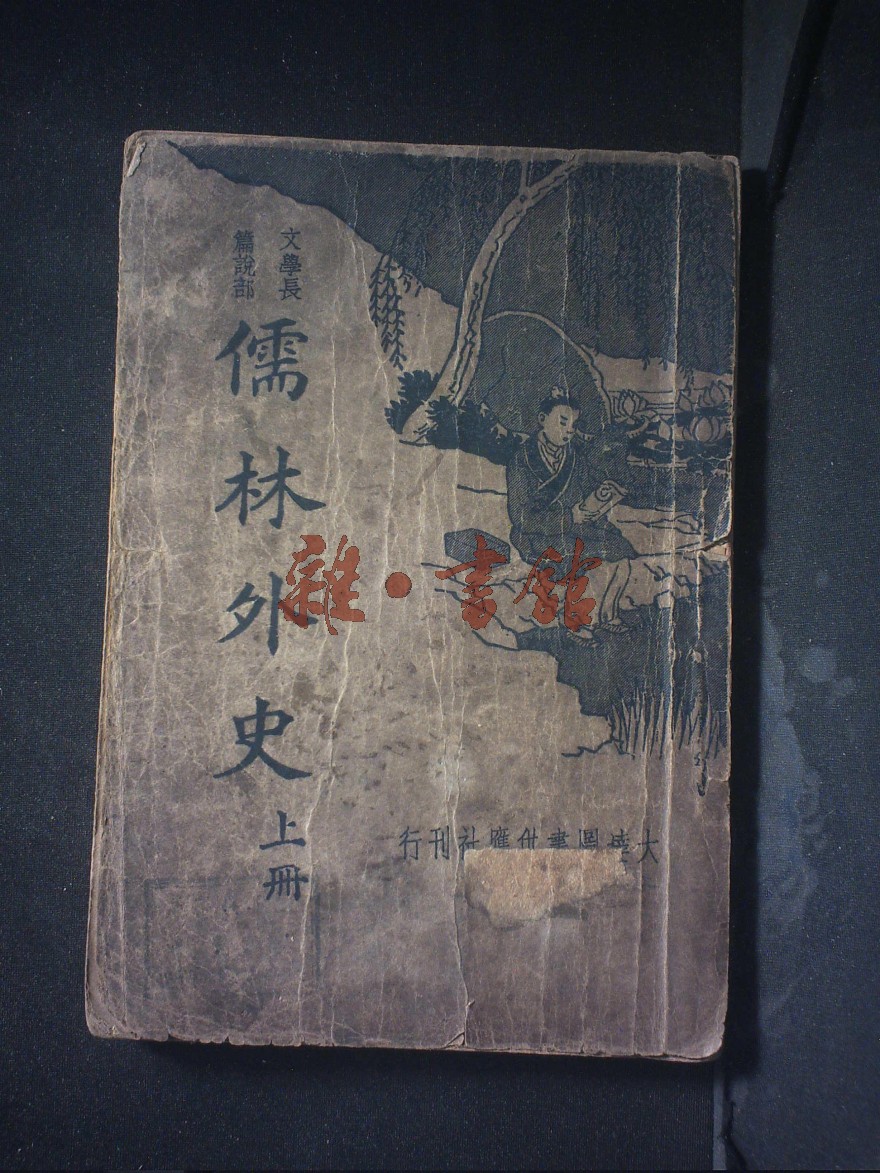 文學長
篇說部
儒林外史
上冊
大達圖書供應社刊行
雜·書館